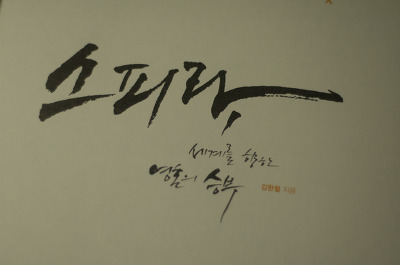 스피릿
세계를 향한
영혼의 승부
지음